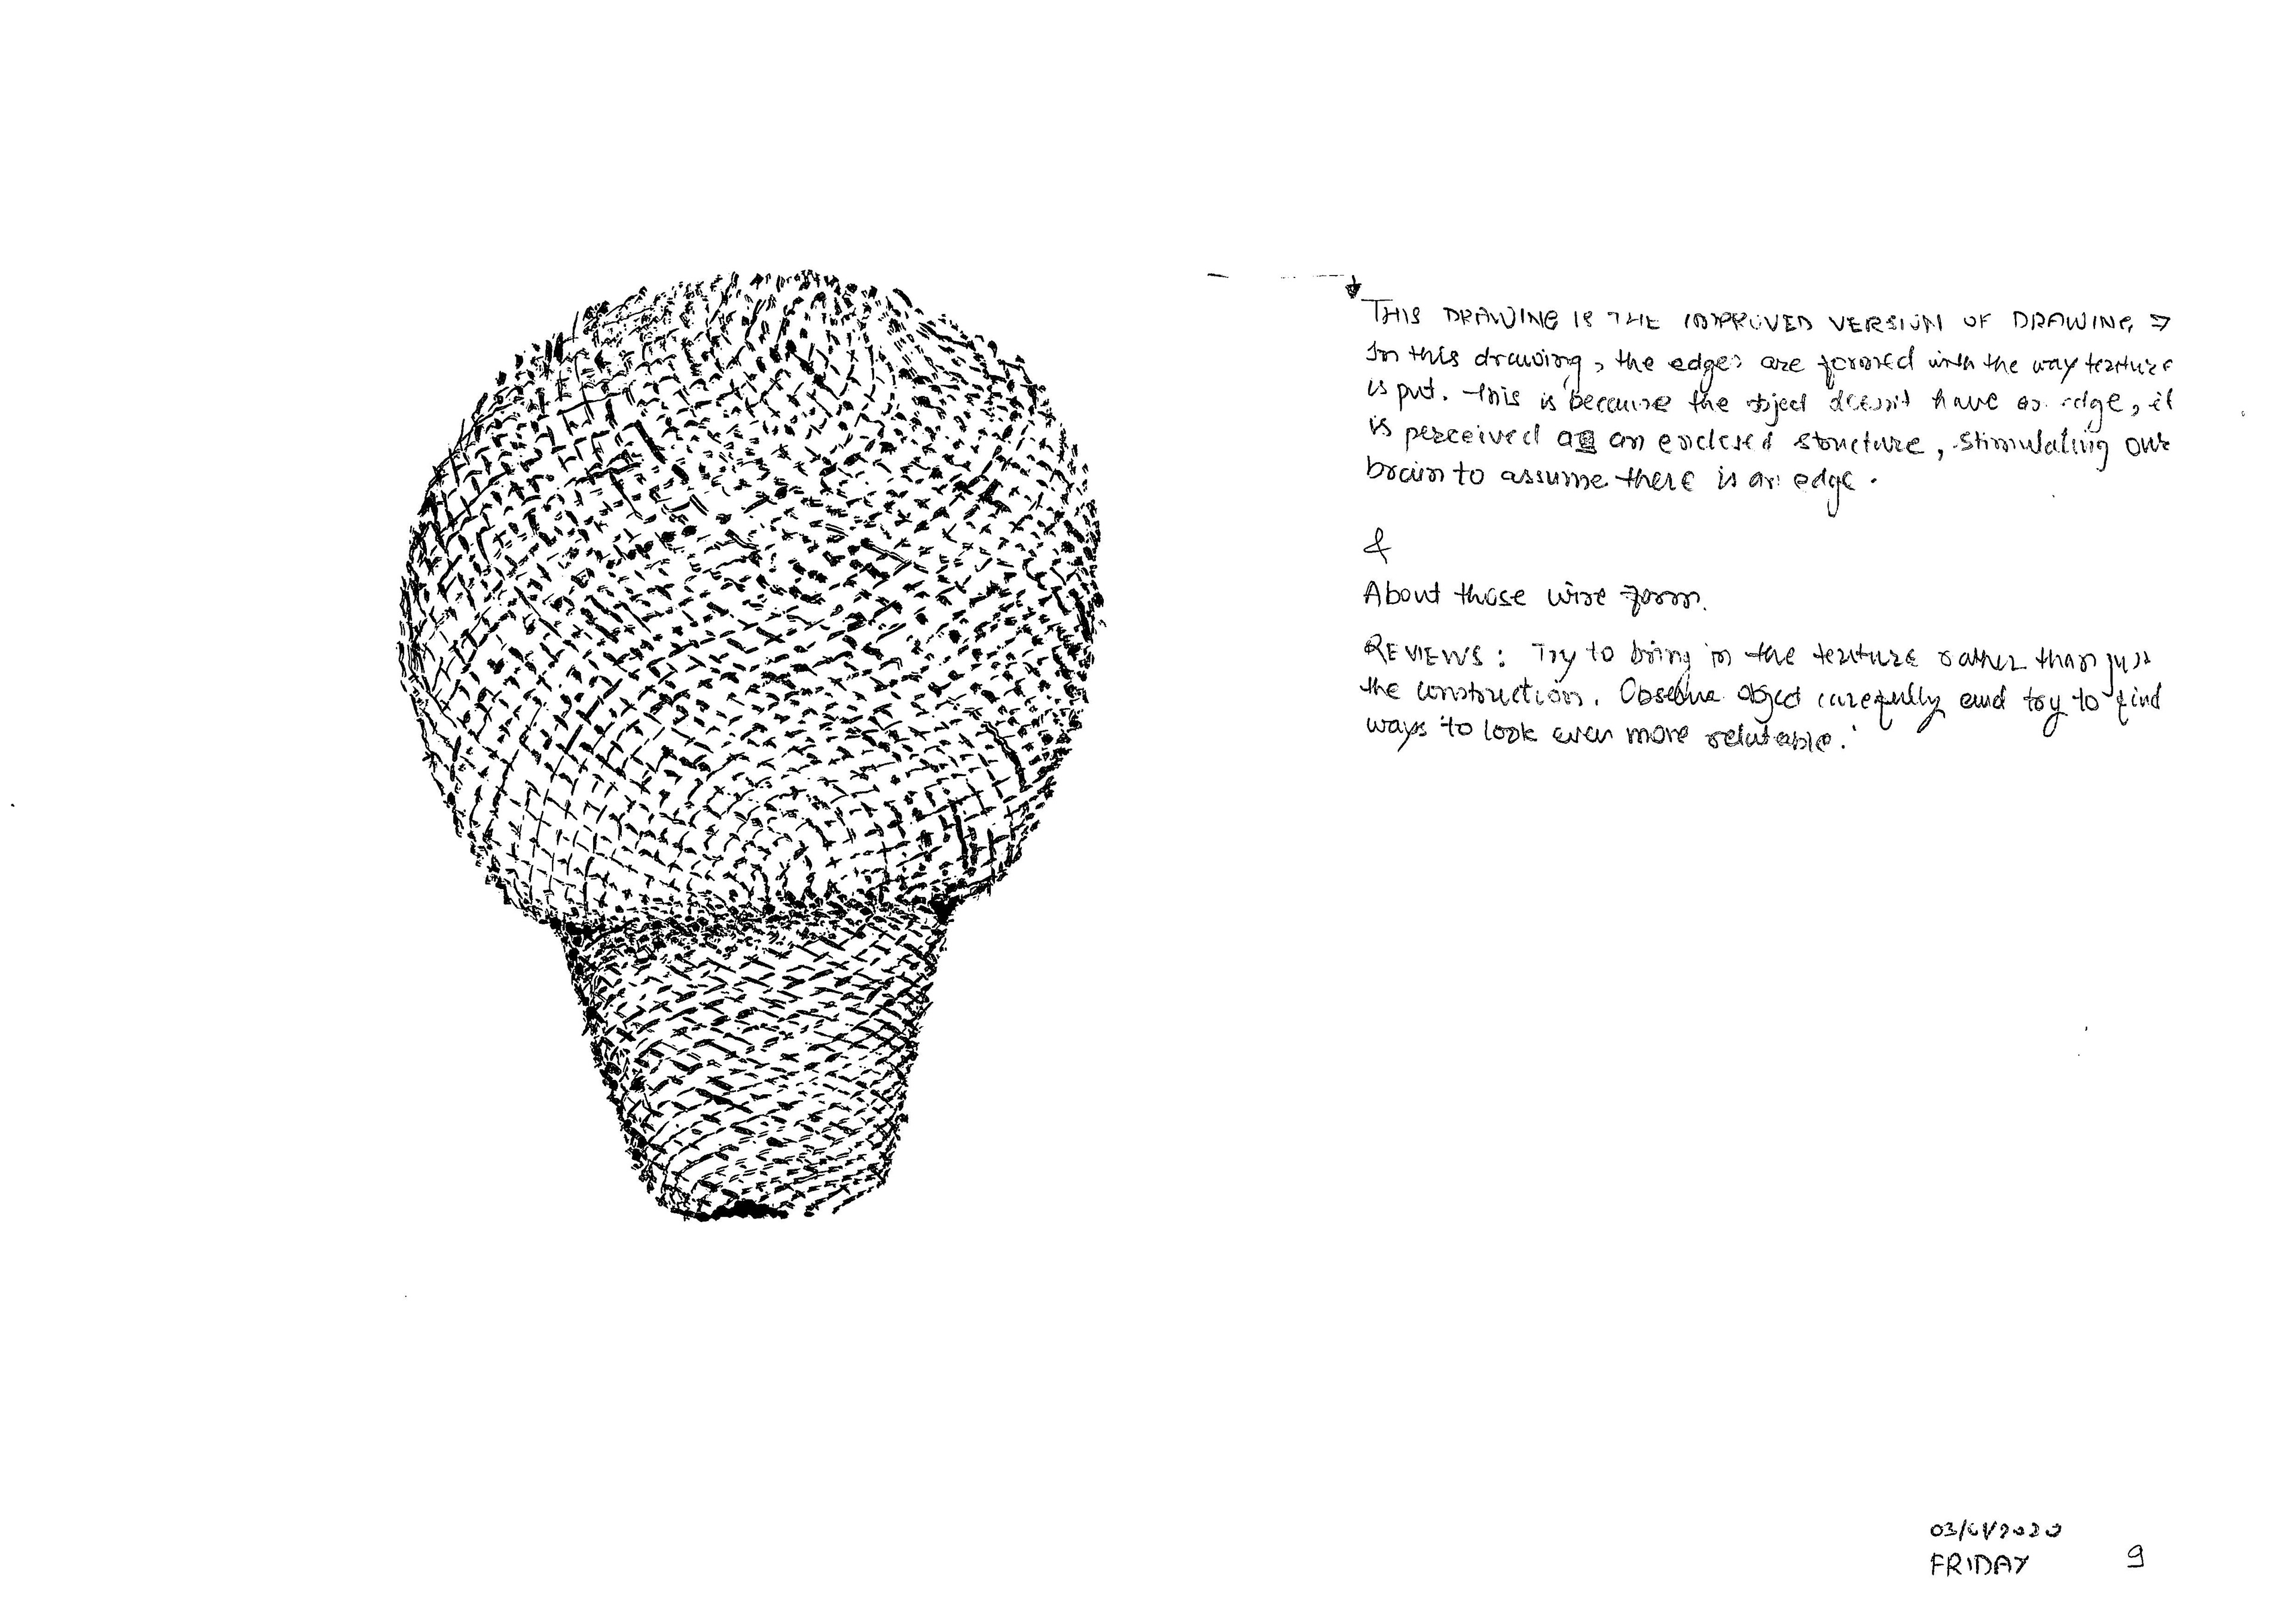 THIS DRAWING IS THE IMPROVED VERSION OF DRAWING ⇒
In this drawing, the edges are formed with the way texture
is put. This is because the object doesn't have an edge, it
is perceived as an enclosed structure, stimulating our
brain to assume there is an edge.
&
About those wire form.
REVIEWS: Try to bring in the texture rather than just
the construction. Observe object carefully and try to find
ways to look even more relatable.
03/01/2020
FRIDAY
9